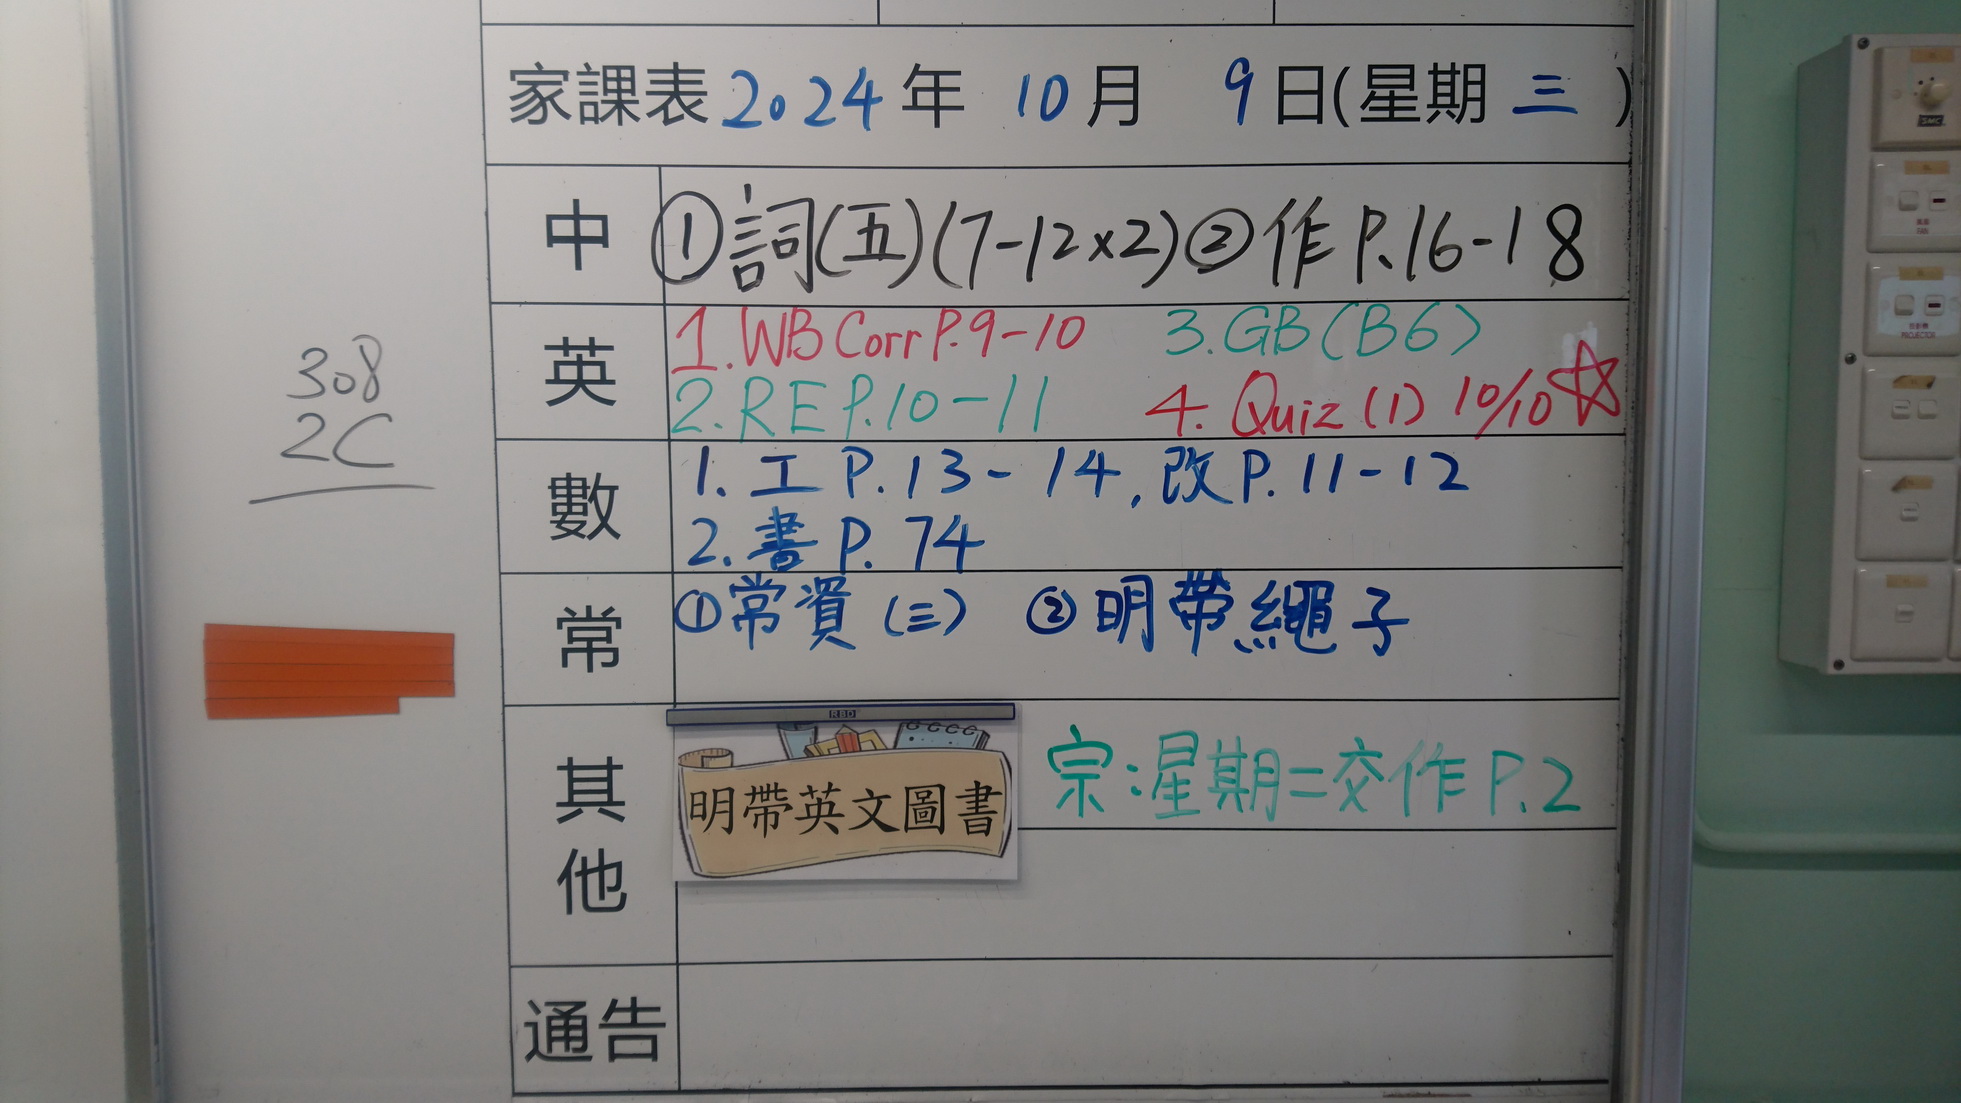 家課表 2024 年 10 月 9 日(星期 三 )
中 ①詞(五)(7-12×2)②作 P.16-18
英 1.WB Corr P.9-10 3.GB(B6)
2.RE P.10-11 4. Quiz (1) 10/10☆
數 1. 工 P.13-14,改P.11-12
2.書 P.74
常 ①常資(三) ②明帶繩子
其他 明帶英文圖書 宗:星期二交作 P.2
通告
308
2C
RBD
SMC
FAN
PROJECTOR